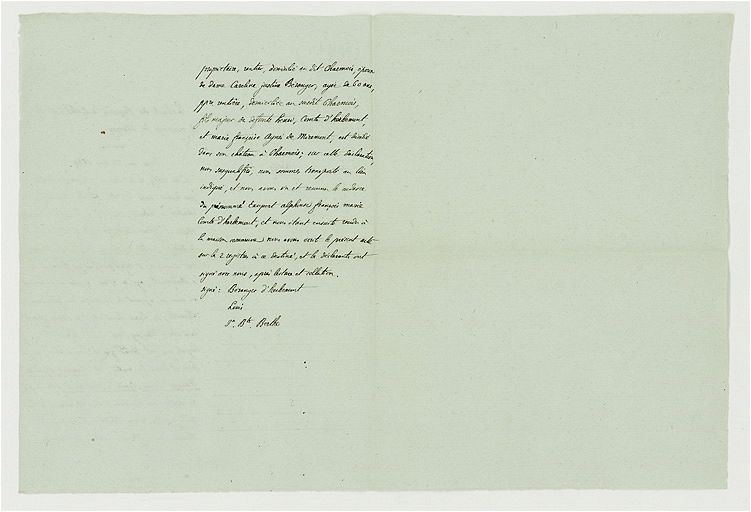 propriétaire, rentier, domicilié au dit Charmois, époux
de dame Caroline justine Béranger, agée de 60 ans,
ppre rentière, domiciliée au susdit Charmois,
fils majeur de défunts Louis, Comte d'herbemont,
et marie françoise Agnès de Miremont, est décédé
dans son chateau à Charmois; sur cette déclaration,
nous susqualifiés, nous sommes transportés au lieu
indiqué, et nous avons vu et reconnu le cadavre
du prénommé alphonse françois marie
Comte d'herbemont, et nous étant ensuite rendu à
la maison commune, nous avons écrit le présent acte
sur les 2 registres à ce destiné, et les déclarants ont
signé avec nous, après lecture et collation.
signé: Béranger d'herbemont
Louis
Jn. Bte. Berthe